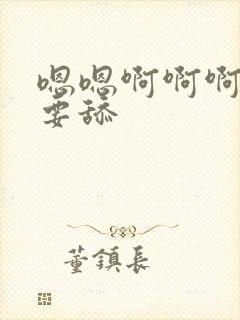 嗯嗯啊啊啊
要舔
董镇长